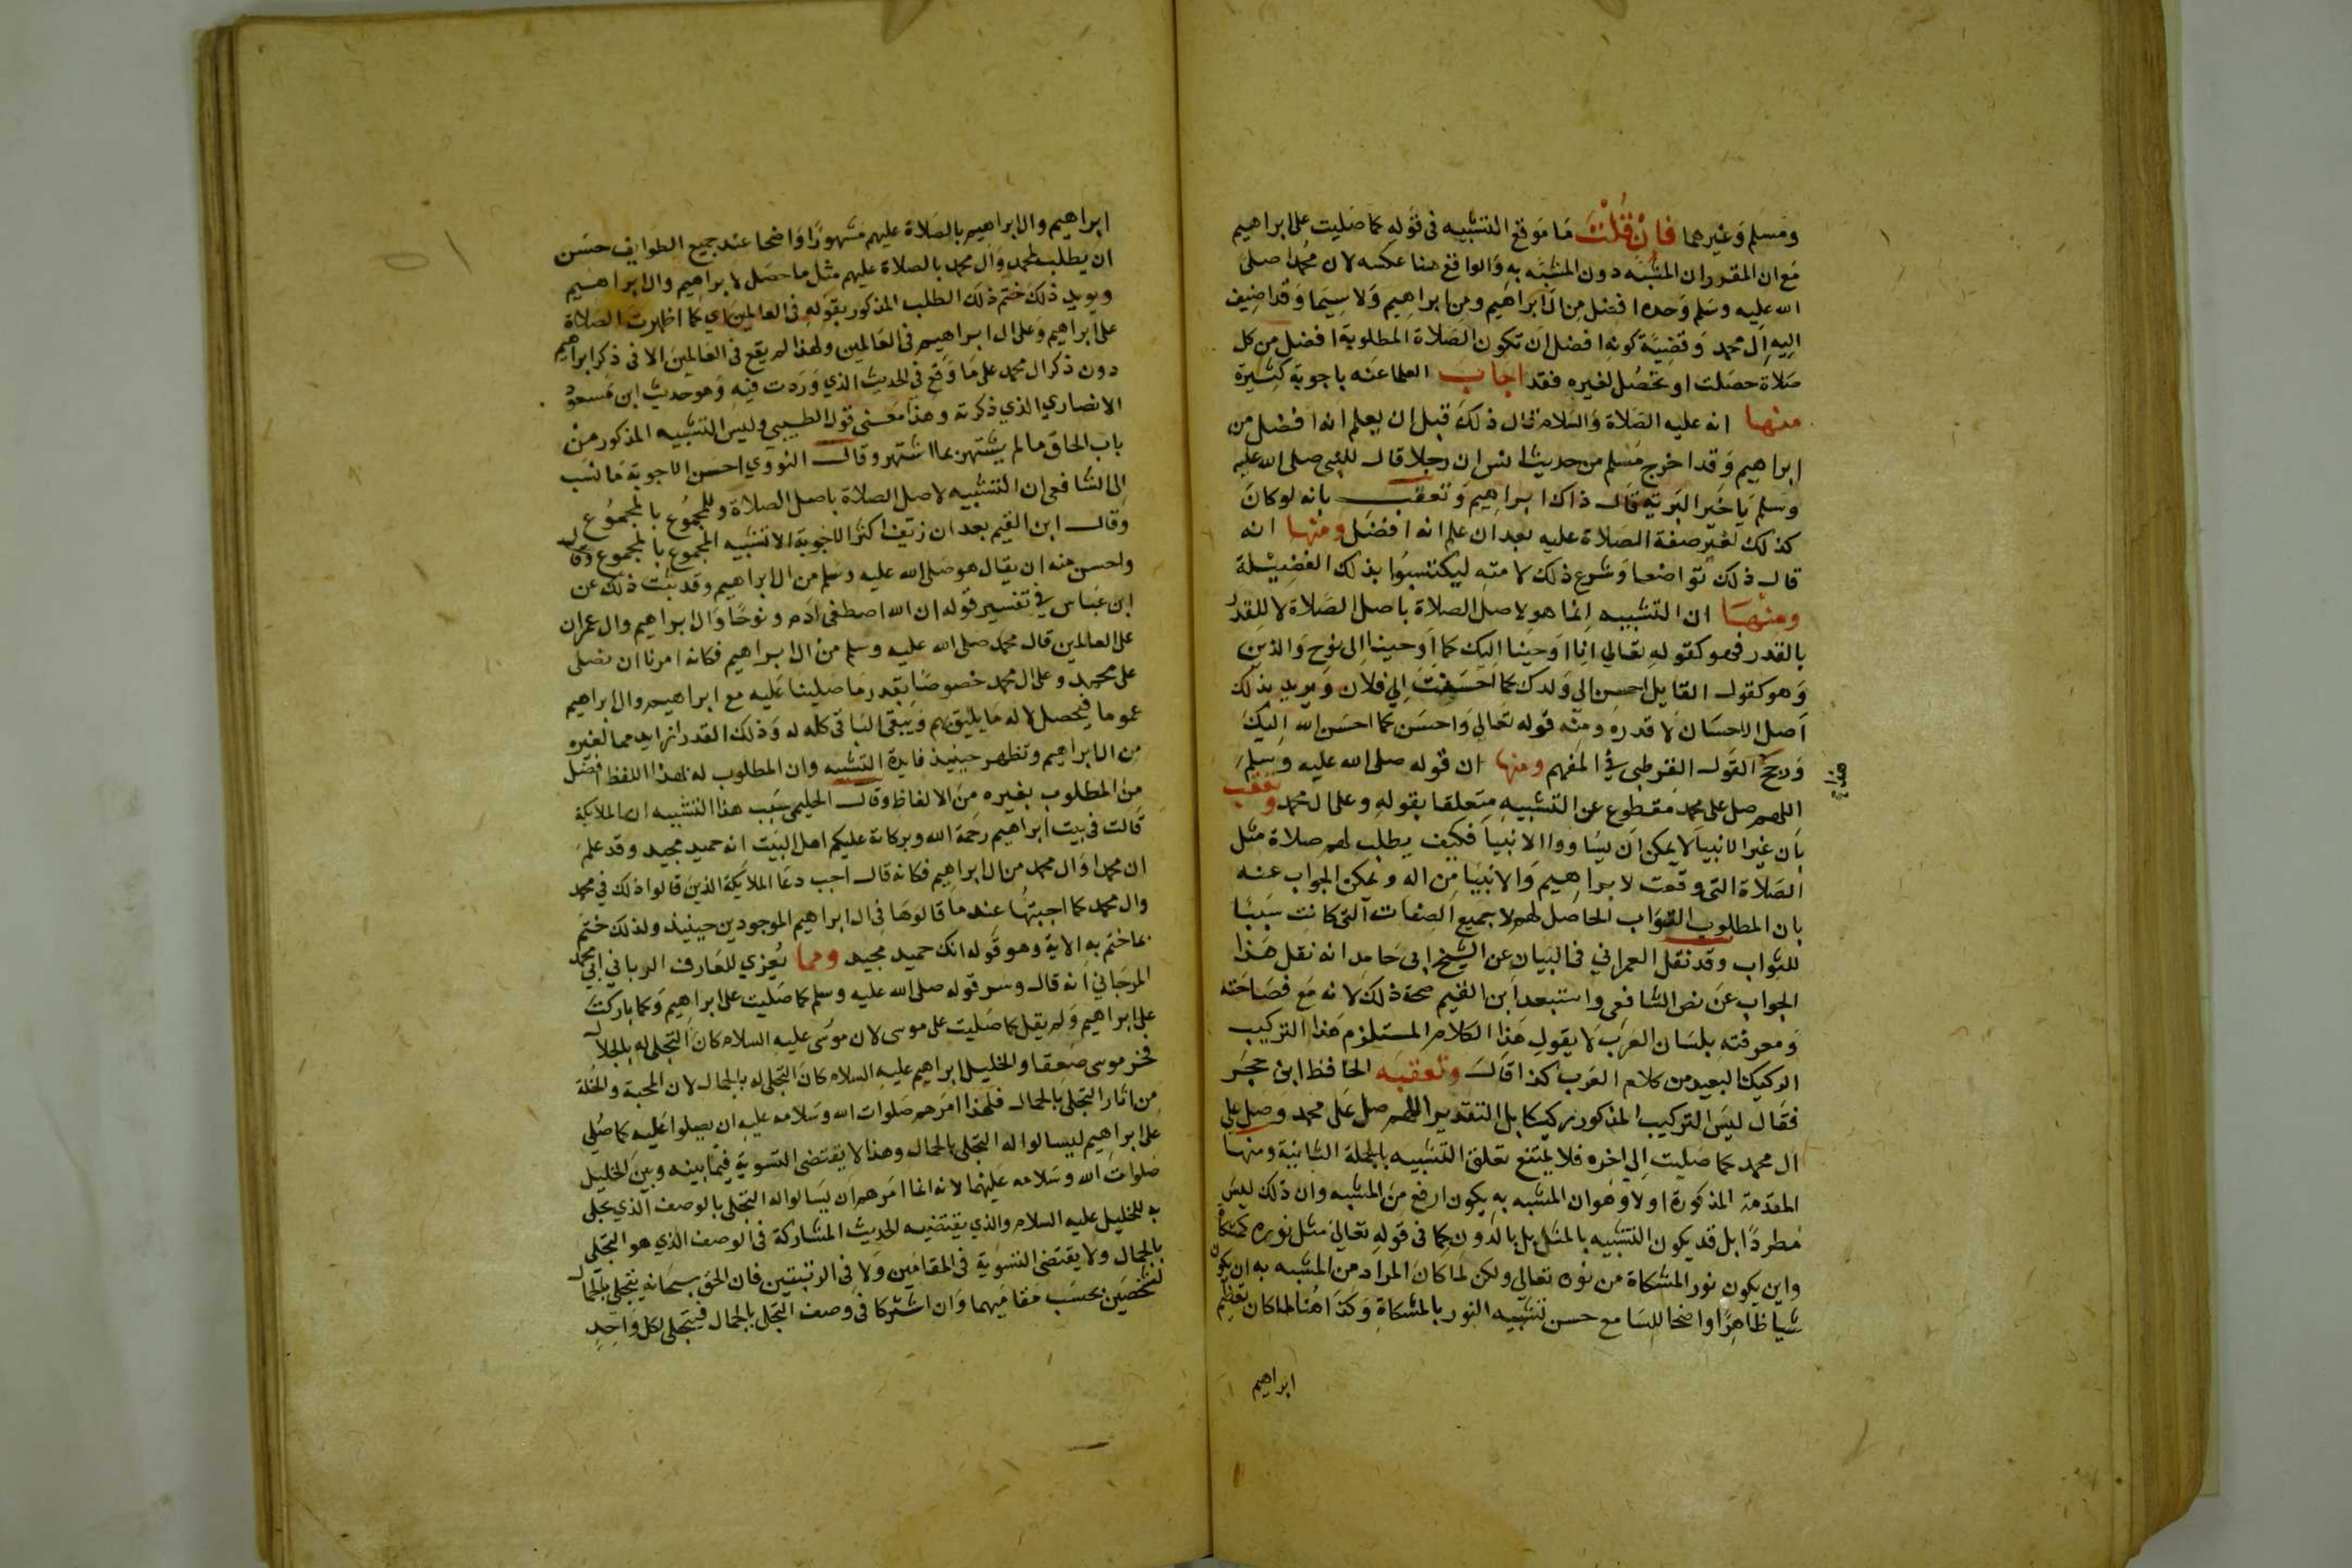 ومسلم وغيرهما فان قلت ما موقع التشبيه في قوله كما صليت على ابراهيم
مع ان المقرر ان المشبه دون المشبه به والواقع هنا عكسه لان محمدا صلى
الله عليه وسلم وحده افضل من ال ابراهيم ومن ابراهيم ولا سيما وقد اضيف
اليه ال محمد وقضية كونه افضل ان تكون الصلاة المطلوبة افضل من كل
صلاة حصلت او تحصل لغيره فقد اجاب العلما عنه باجوبة كثيرة
منها انه عليه الصلاة والسلام قال ذلك قبل ان يعلم انه افضل من
ابراهيم وقد اخرج مسلم من حديث انس ان رجلا قال للنبي صلى الله عليه
وسلم يا خير البرية قال ذاك ابراهيم وتعقب بانه لو كان
كذلك لغير صفة الصلاة عليه بعد ان علم انه افضل ومنها انه
قال ذلك تواضعا وشرع ذلك لامته ليكتسبوا بذلك الفضيلة
ومنها ان التشبيه انما هو لاصل الصلاة باصل الصلاة لا للقدر
بالقدر فهو كقوله تعالى انا اوحينا اليك كما اوحينا الى نوح والذين
وهو كقول القايل احسن الى ولدك كما احسنت الى فلان ويريد بذلك
اصل الاحسان لا قدره ومنه قوله تعالى واحسن كما احسن الله اليك
ورجح القول القرطبي في المفهم ومنها ان قوله صلى الله عليه وسلم
هذا
اللهم صل على محمد مقطوع عن التشبيه متعلقا بقوله وعلى ال محمد وتعقب
بان غير الانبيا لا يمكن ان يساووا الانبيا فكيف يطلب لهم صلاة مثل
الصلاة التي وقعت لابراهيم والانبيا من اله ويمكن الجواب عنه
بان المطلوب الثواب الحاصل لهم لا جميع الصفات التي كانت سببا
للثواب وقد نقل العمراني في البيان عن الشيخ ابي حامد انه نقل هذا
الجواب عن نص الشافعي واستبعد ابن القيم صحة ذلك لانه مع فصاحته
ومعرفته بلسان العرب لا يقول هذا الكلام المستلزم هذا التركيب
الركيك البعيد من كلام العرب كذا قال وتعقبه الحافظ ابن حجر
فقال ليس التركيب المذكور بركيك بل التقدير اللهم صل على محمد وصل على
ال محمد كما صليت الى اخره فلا يمتنع تعلق التشبيه بالجملة الثانية ومنها
المقدمة المذكورة اولا وهو ان المشبه به يكون ارفع من المشبه وان ذلك ليس
مطردا بل قد يكون التشبيه بالمثل بل بالدون كما في قوله تعالى مثل نوره كمشكاة
واين يكون نور المشكاة من نوره تعالى ولكن لما كان المراد من المشبه به ان يكون
شيا ظاهرا واضحا للسامع حسن تشبيه النور بالمشكاة وكذا هنا لما كان تعظيم
ابراهيم
ابراهيم وال ابراهيم بالصلاة عليهم مشهورا واضحا عند جميع الطوايف حسن
ان يطلب لمحمد وال محمد بالصلاة عليهم مثل ما حصل لابراهيم وال ابراهيم
ويويد ذلك ختم ذلك الطلب المذكور بقوله في العالمين اي كما اظهرت الصلاة
على ابراهيم وعلى ال ابراهيم في العالمين ولهذا لم يقع في العالمين الا في ذكر ابراهيم
دون ذكر ال محمد على ما وقع في الحديث الذي وردت فيه وهو حديث ابن مسعود
الانصاري الذي ذكرته وهذا معنى قول الطيبي وليس التشبيه المذكور من
باب الحاق ما لم يشتهر بما اشتهر وقال النووي احسن الاجوبة ما نسب
الى الشافعي ان التشبيه لاصل الصلاة باصل الصلاة وللمجموع بالمجموع
وقال ابن القيم بعد ان زيف اكثر الاجوبة الا تشبيه المجموع بالمجموع وقال
واحسن منه ان يقال هو صلى الله عليه وسلم من ال ابراهيم وقد ثبت ذلك عن
ابن عباس في تفسير قوله ان الله اصطفى ادم ونوحا وال ابراهيم وال عمران
على العالمين قال محمد صلى الله عليه وسلم من ال ابراهيم فكانه امرنا ان نصلي
على محمد وعلى ال محمد خصوصا بقدر ما صلينا عليه مع ابراهيم وال ابراهيم
عموما فيحصل لاله ما يليق بهم ويبقى الباقي كله له وذلك القدر ازيد مما لغيره
من ال ابراهيم وتظهر حينيذ فايدة التشبيه وان المطلوب له بهذا اللفظ افضل
من المطلوب بغيره من الالفاظ وقال الحليمي سبب هذا التشبيه ان الملايكة
قالت في بيت ابراهيم رحمة الله وبركاته عليكم اهل البيت انه حميد مجيد وقد علم
ان محمدا وال محمد من ال ابراهيم فكانه قال اجب دعا الملايكة الذين قالوا ذلك في محمد
وال محمد كما اجبتها عندما قالوها في ال ابراهيم الموجودين حينيذ ولذلك ختم
بما ختم به الاية وهو قوله انك حميد مجيد ومما يعزي للعارف الرباني ابي محمد
المرجاني انه قال وسر قوله صلى الله عليه وسلم كما صليت على ابراهيم وكما باركت
على ابراهيم ولم يقل كما صليت على موسى لان موسى عليه السلام كان التجلي له بالجلال
فخر موسى صعقا والخليل ابراهيم عليه السلام كان التجلي له بالجمال لان المحبة والخلة
من اثار التجلي بالجمال فلهذا امرهم صلوات الله وسلامه عليه ان يصلوا عليه كما صلي
على ابراهيم ليسالوا له التجلي بالجمال وهذا لا يقتضي التسوية فيما بينه وبين الخليل
صلوات الله وسلامه عليهما لانه انما امرهم ان يسالوا له التجلي بالوصف الذي تجلى
به للخليل عليه السلام والذي يقتضيه الحديث المشاركة في الوصف الذي هو التجلي
بالجمال ولا يقتضي التسوية في المقامين ولا في الرتبتين فان الحق سبحانه يتجلى بالجمال
لشخصين بحسب مقاميهما وان اشتركا في وصف التجلي بالجمال فيتجلى لكل واحد